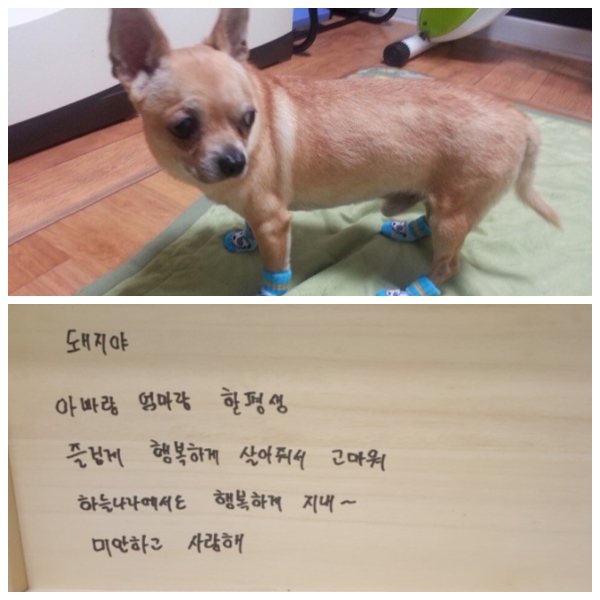 돼지야
아빠랑 엄마랑 한평생
즐겁게 행복하게 살아줘서 고마워
하늘나라에서도 행복하게 지내~
미안하고 사랑해